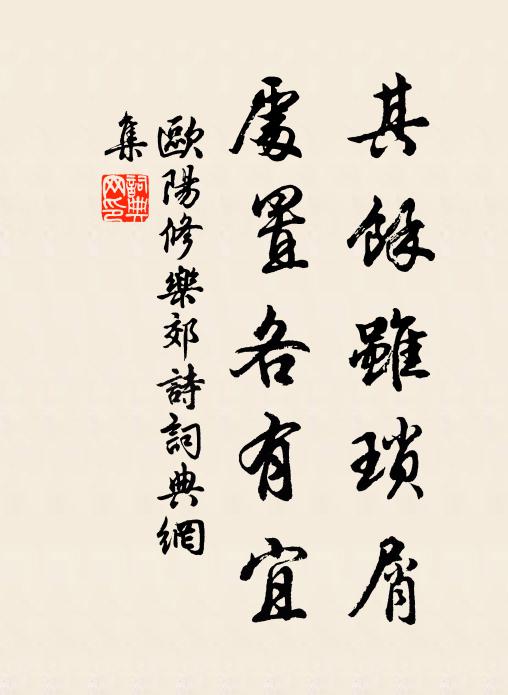 其餘雖瑣屑
處置各有宜
歐陽修樂郊詩詞典網
集
詞典
网印